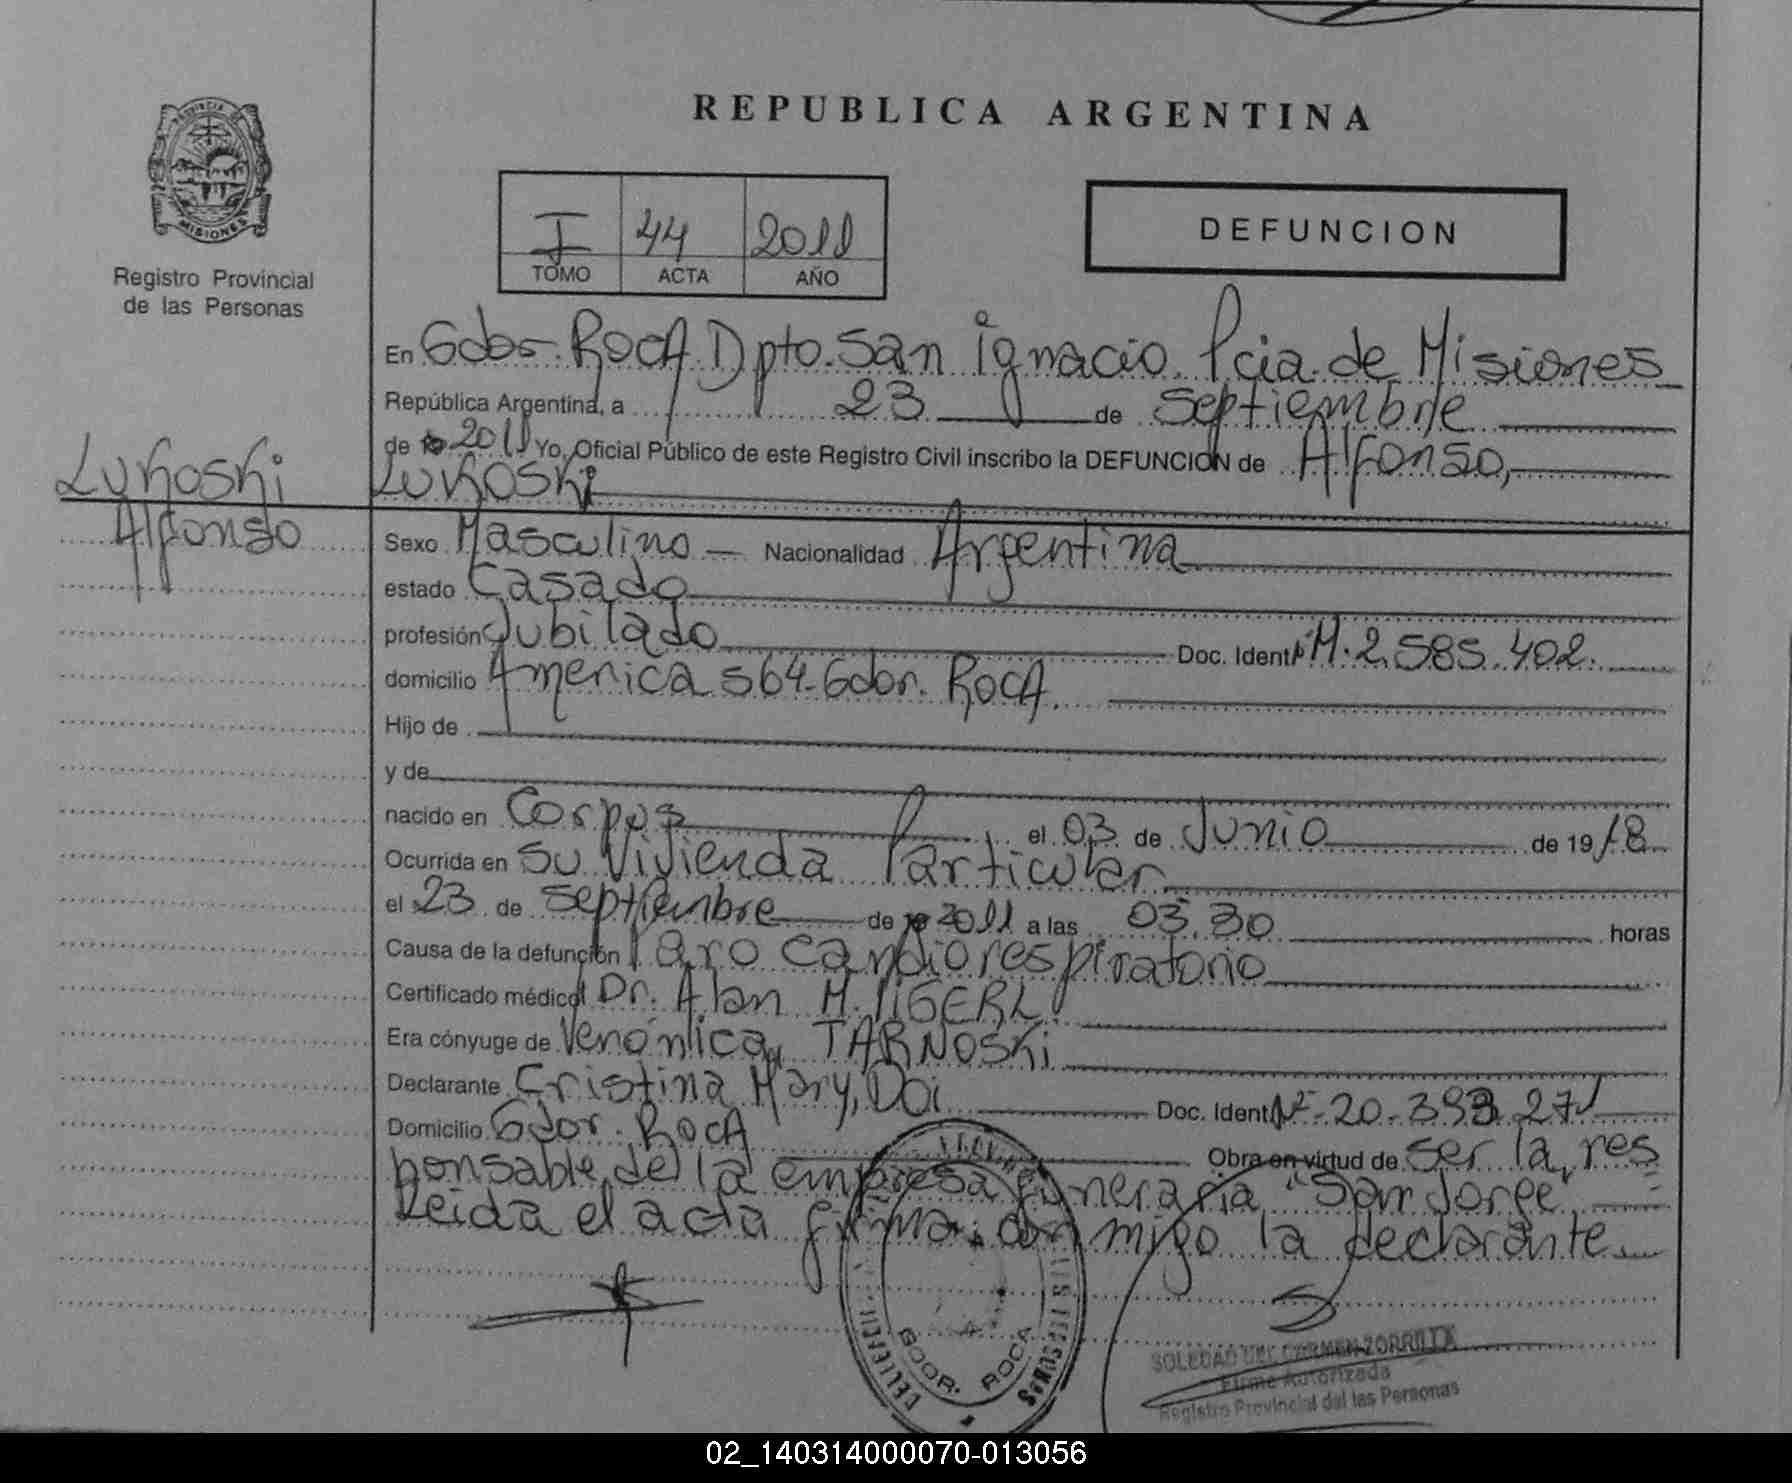 REPUBLICA ARGENTINA
PROVINCIA DE
MISIONES
Registro Provincial
de las Personas
I 44 2011
TOMO ACTA AÑO
DEFUNCION
En Gdor. ROCA Dpto. San Ignacio Pcia. de Misiones
República Argentina, a 23 de Septiembre
de 2011 Yo, Oficial Público de este Registro Civil inscribo la DEFUNCION de Alfonso,
Lukoski
Lukoski
Alfonso
Sexo Masculino Nacionalidad Argentina
estado Casado
profesión Jubilado Doc. Ident. M. 2.585.402
domicilio America 564 - Gdor. ROCA.
Hijo de
y de
nacido en Corpus el 03 de Junio de 1918
Ocurrida en su Vivienda Particular
el 23 de Septiembre de 2011 a las 03.30 horas
Causa de la defunción Paro Cardiorespiratorio
Certificado médico Dr. Alan M.
Era cónyuge de Verónica TARNOSKi
Declarante Cristina Mary, Doi Doc. Ident. Nº 20.393.27
Domicilio Gdor. ROCA Obra en virtud de ser la res
ponsable de la empresa funeraria "San Jorge"
Leida el acta firma con migo la declarante
GDOR. ROCA
SOLEDAD DEL CARMEN ZORRILLA
Firma Autorizada
Registro Provincial del las Personas
02_140314000070-013056